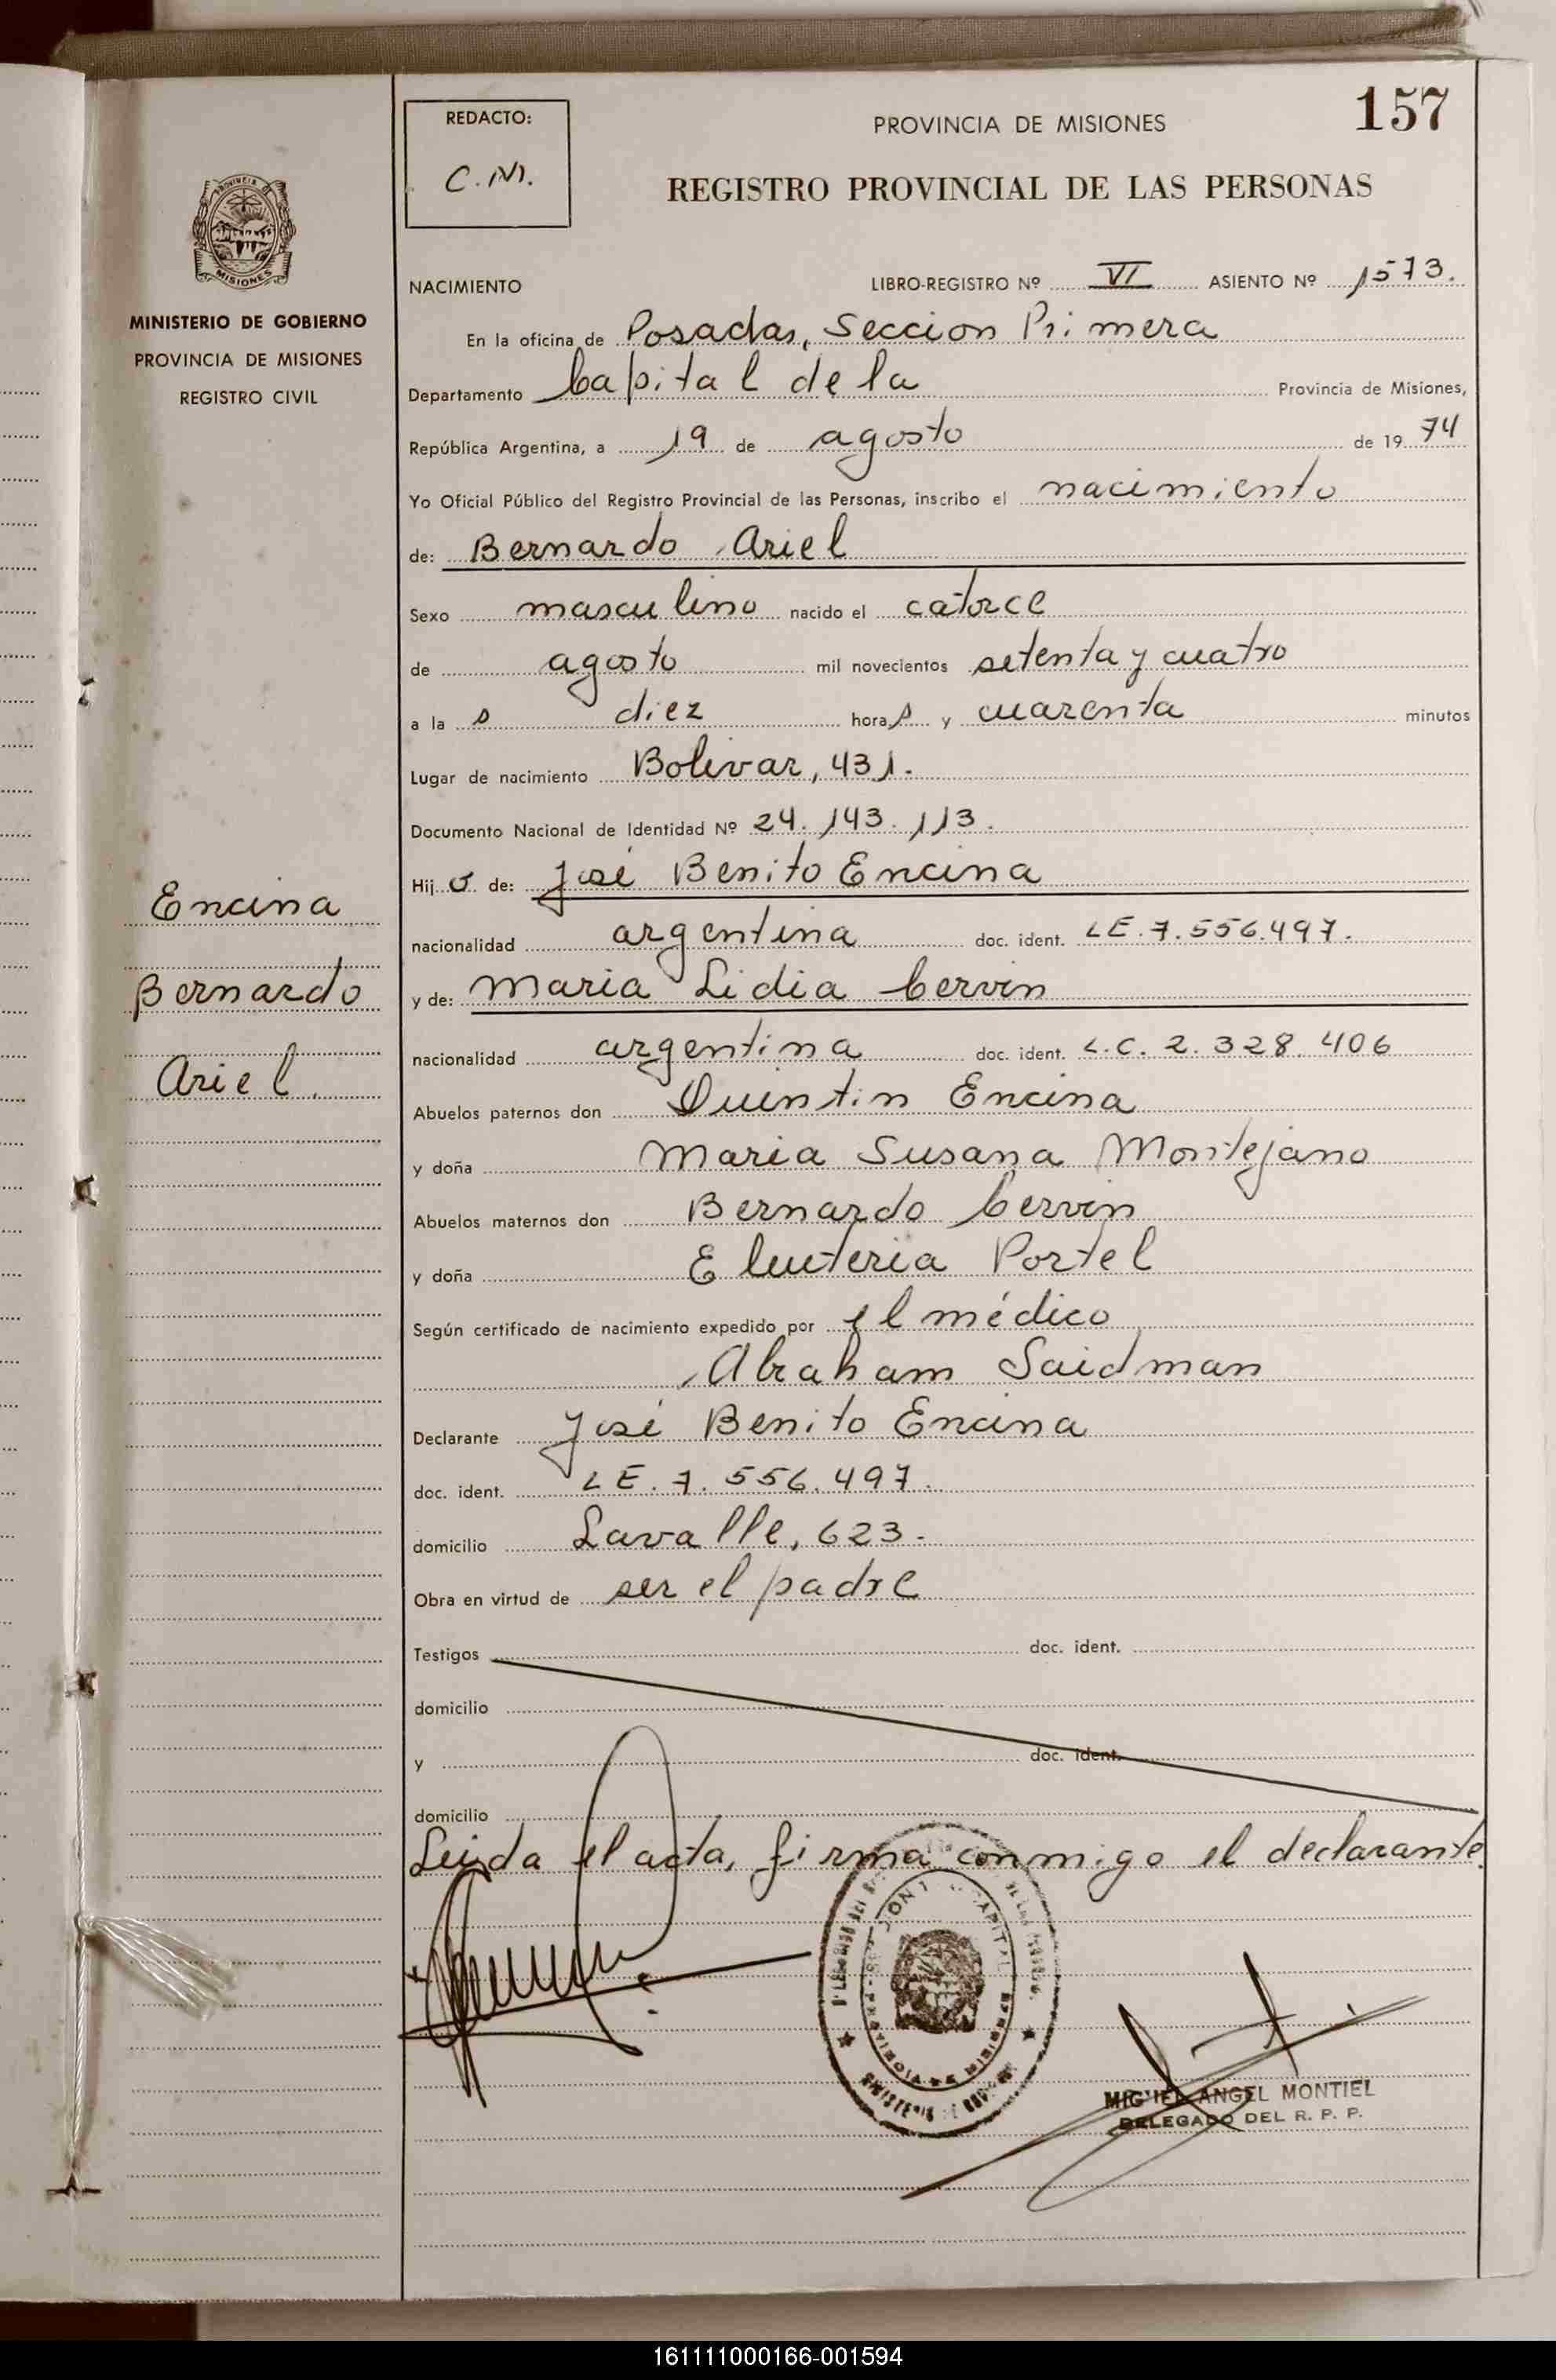 157
REDACTO:
C.M.
PROVINCIA DE MISIONES
REGISTRO PROVINCIAL DE LAS PERSONAS
PROVINCIA DE
MISIONES
MINISTERIO DE GOBIERNO
PROVINCIA DE MISIONES
REGISTRO CIVIL
NACIMIENTO LIBRO-REGISTRO Nº VI ASIENTO Nº 1573.
En la oficina de Posadas, Seccion Primera
Departamento Capital de la Provincia de Misiones,
República Argentina, a 19 de agosto de 1974
Yo Oficial Público del Registro Provincial de las Personas, inscribo el nacimiento
de: Bernardo Ariel
Sexo masculino nacido el catorce
de agosto mil novecientos setenta y cuatro
a la s diez hora s y cuarenta minutos
Lugar de nacimiento Bolivar, 431.
Documento Nacional de Identidad Nº 24.143.113.
Hij o de: José Benito Encina
nacionalidad argentina doc. ident. LE.7.556.497.
y de: Maria Lidia Cervin
nacionalidad argentina doc. ident. L.C. 2.328.406
Abuelos paternos don Quintin Encina
y doña Maria Susana Montejano
Abuelos maternos don Bernardo Cervin
y doña Eleuteria Portel
Según certificado de nacimiento expedido por el médico
Abraham Saidman
Declarante José Benito Encina
doc. ident. LE.7.556.497.
domicilio Lavalle, 623.
Obra en virtud de ser el padre
Testigos doc. ident.
domicilio
y doc. ident.
domicilio
Leida el acta, firma conmigo el declarante.
Encina
Bernardo
Ariel.
MIGUEL ANGEL MONTIEL
DELEGADO DEL R. P. P.
161111000166-001594